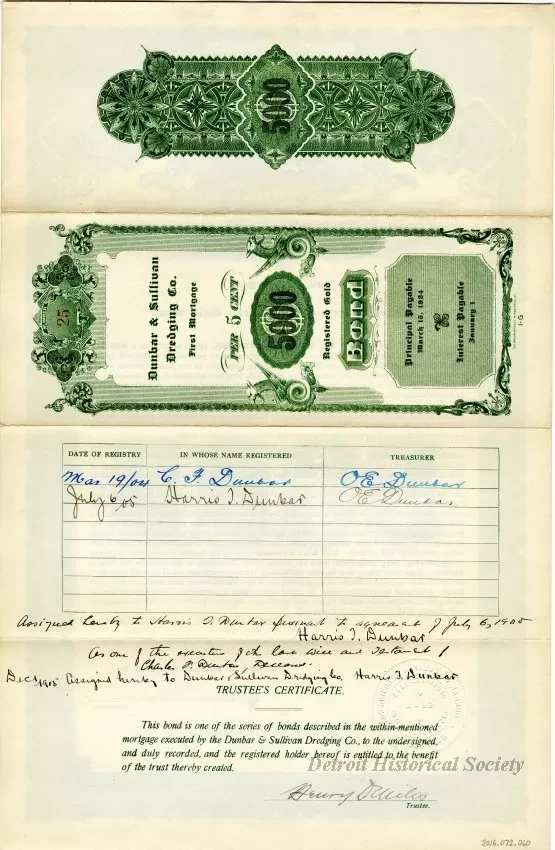 5000
25
Dunbar & Sullivan
Dredging Co.
First Mortgage
PER 5 CENT
5000
Registered Gold
Bond
Principal Payable
March 15, 1924
Interest Payable
January 1
G-1
DATE OF REGISTRY IN WHOSE NAME REGISTERED TREASURER
Mar 19/04 C. F. Dunbar O E Dunbar
July 6 05 Harris T. Dunbar O E Dunbar
Assigned hereby to Harris T. Dunbar pursuant to agreement of July 6, 1905
Harris T. Dunbar
As one of the executors of the last Will and Testament of
Charles F. Dunbar, Deceased.
Dec 1905 Assigned hereby to Dunbar & Sullivan Dredging Co. Harris T. Dunbar
TRUSTEE'S CERTIFICATE.
This bond is one of the series of bonds described in the within-mentioned
mortgage executed by the Dunbar & Sullivan Dredging Co., to the undersigned,
and duly recorded, and the registered holder hereof is entitled to the benefit
of the trust thereby created.
Detroit Historical Society
Henry
Trustee.
2016.072.060